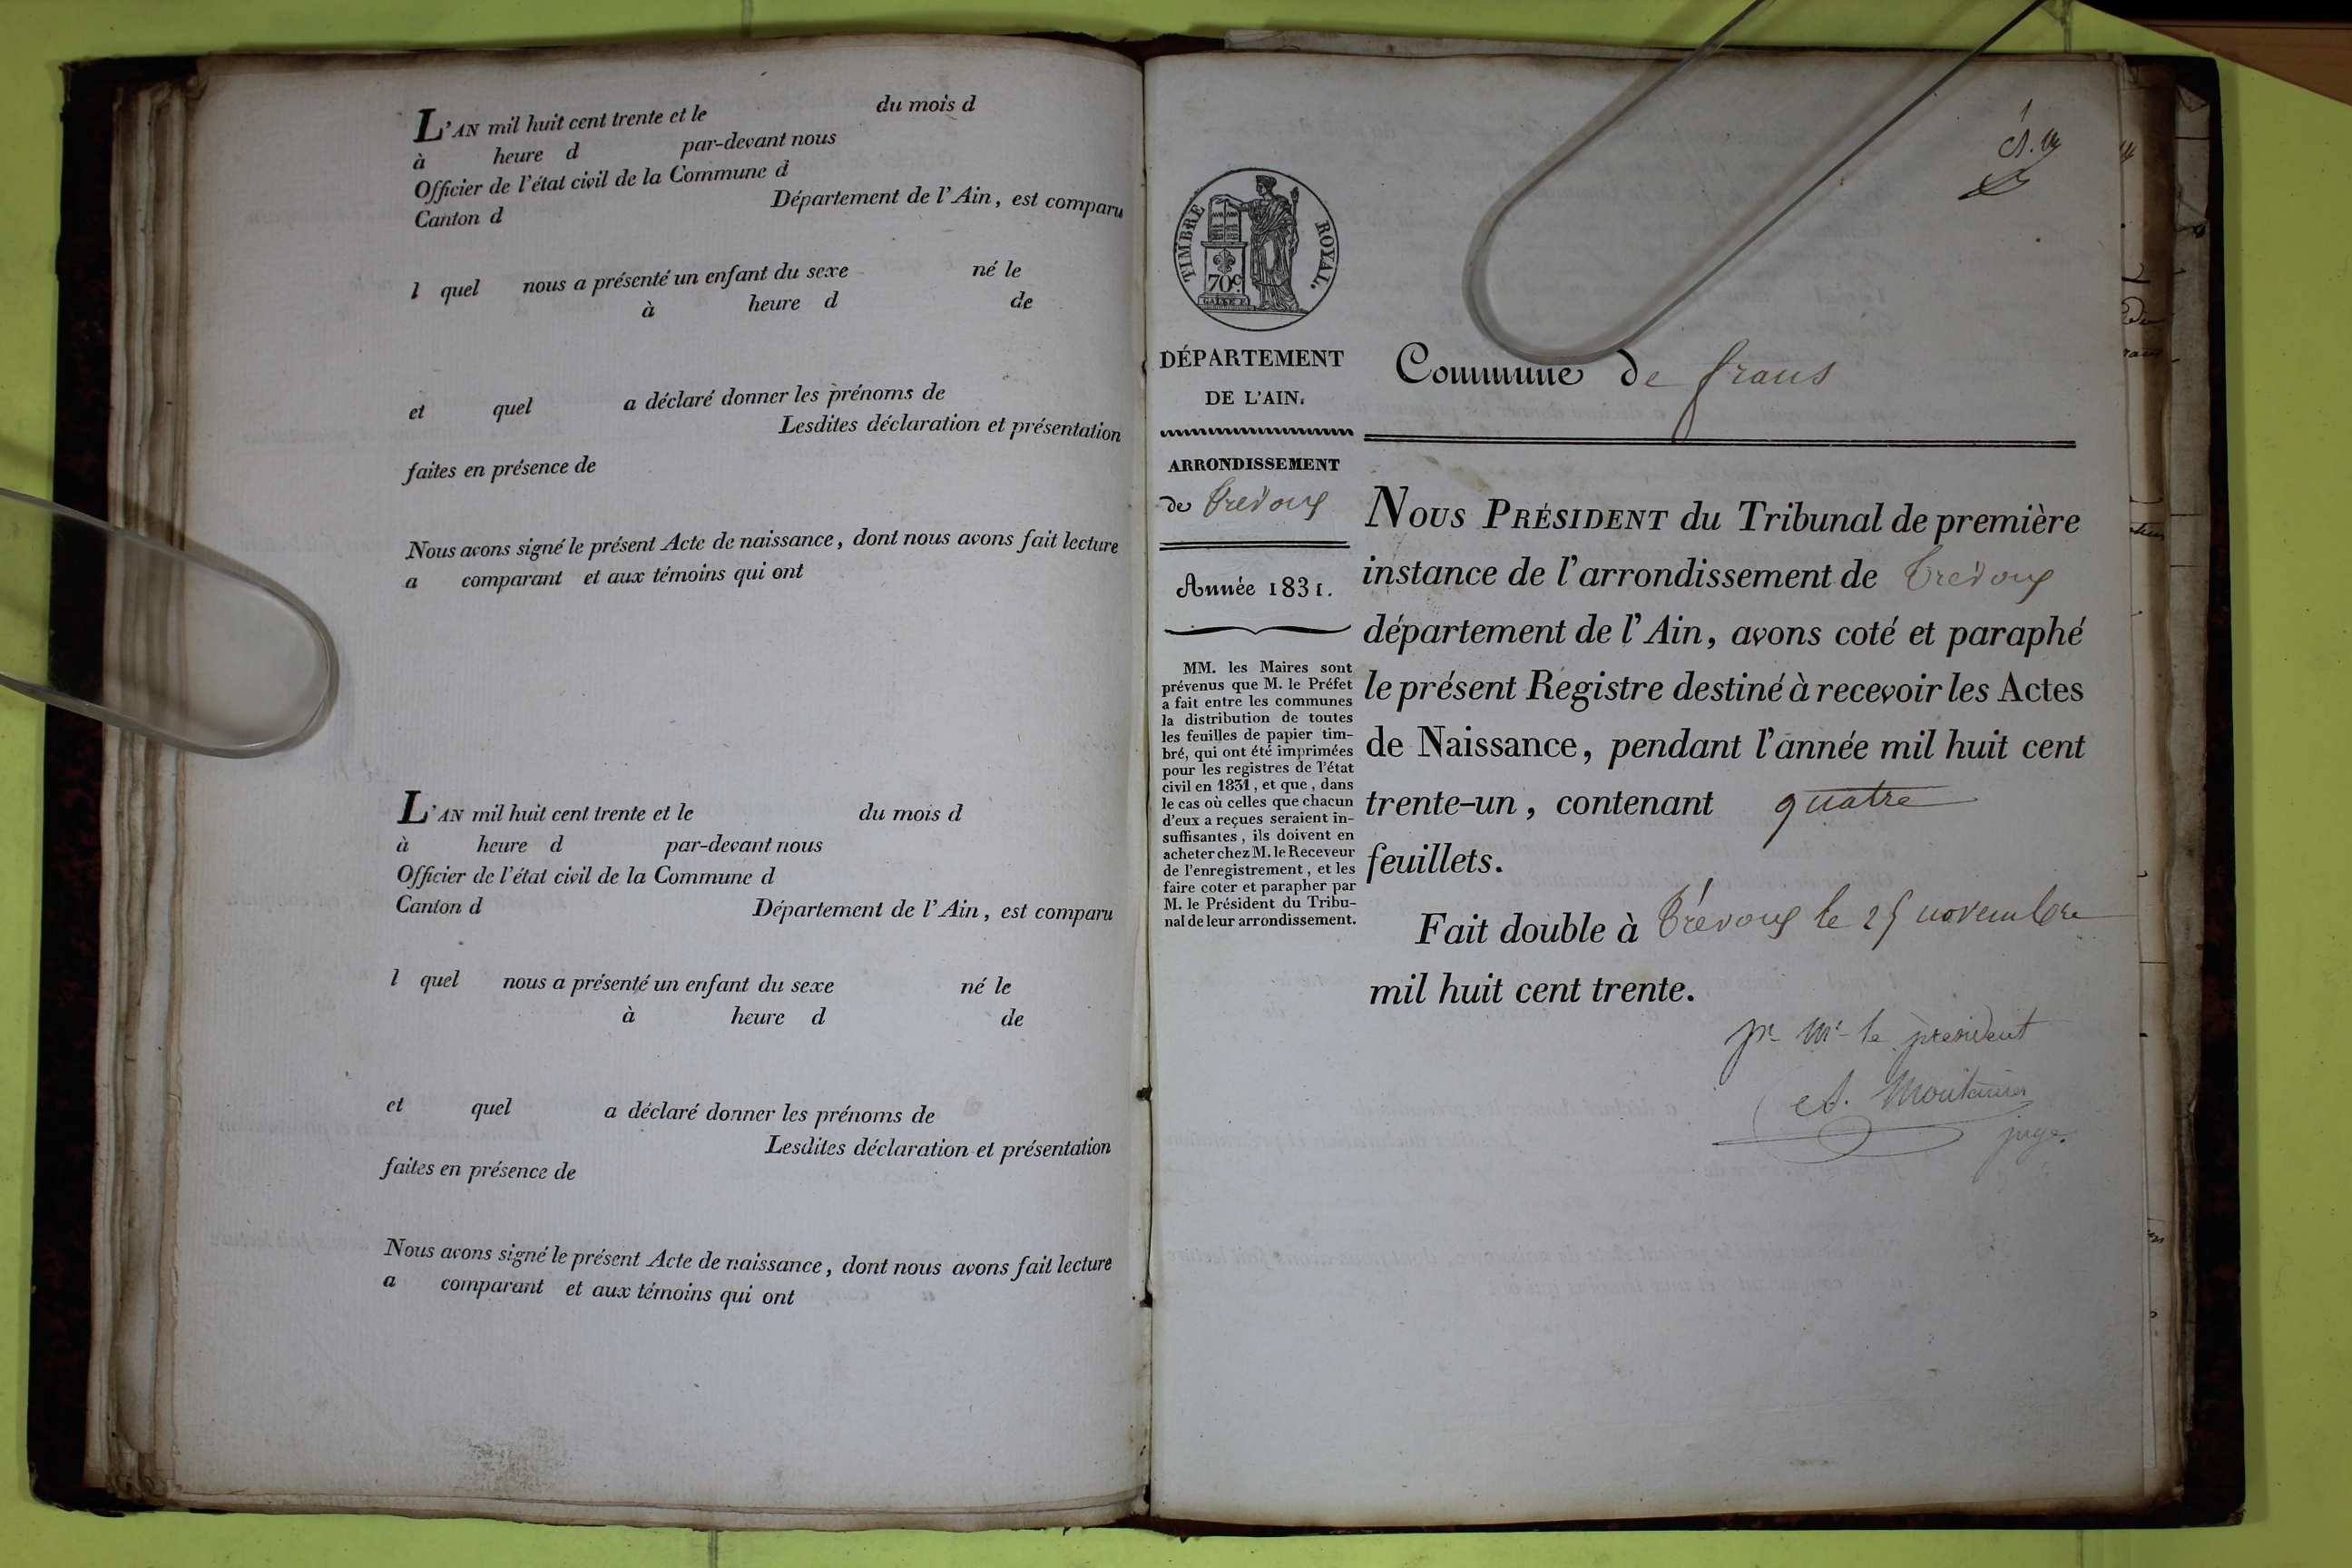 L'AN mil huit cent trente et le du mois d
à heure d par-devant nous
Officier de l'état civil de la Commune d
Canton d Département de l'Ain, est comparu
l quel nous a présenté un enfant du sexe né le
à heure d de
et quel a déclaré donner les prénoms de
Lesdites déclaration et présentation
faites en présence de
Nous avons signé le présent Acte de naissance, dont nous avons fait lecture
a comparant et aux témoins qui ont
L'AN mil huit cent trente et le du mois d
à heure d par-devant nous
Officier de l'état civil de la Commune d
Canton d Département de l'Ain, est comparu
l quel nous a présenté un enfant du sexe né le
à heure d de
et quel a déclaré donner les prénoms de
Lesdites déclaration et présentation
faites en présence de
Nous avons signé le présent Acte de naissance, dont nous avons fait lecture
a comparant et aux témoins qui ont
1
TIMBRE ROYAL.
70c
DÉPARTEMENT
DE L'AIN.
ARRONDISSEMENT
de Trévoux
Année 1831.
MM. les Maires sont
prévenus que M. le Préfet
a fait entre les communes
la distribution de toutes
les feuilles de papier tim-
bré, qui ont été imprimées
pour les registres de l'état
civil en 1831, et que, dans
le cas où celles que chacun
d'eux a reçues seraient in-
suffisantes, ils doivent en
acheter chez M. le Receveur
de l'enregistrement, et les
faire coter et parapher par
M. le Président du Tribu-
nal de leur arrondissement.
Commune de frans
NOUS PRÉSIDENT du Tribunal de première
instance de l'arrondissement de Trévoux
département de l'Ain, avons coté et paraphé
le présent Registre destiné à recevoir les Actes
de Naissance, pendant l'année mil huit cent
trente-un, contenant quatre
feuillets.
Fait double à Trévoux le 25 novembre
mil huit cent trente.
pr Mr le président
juge.